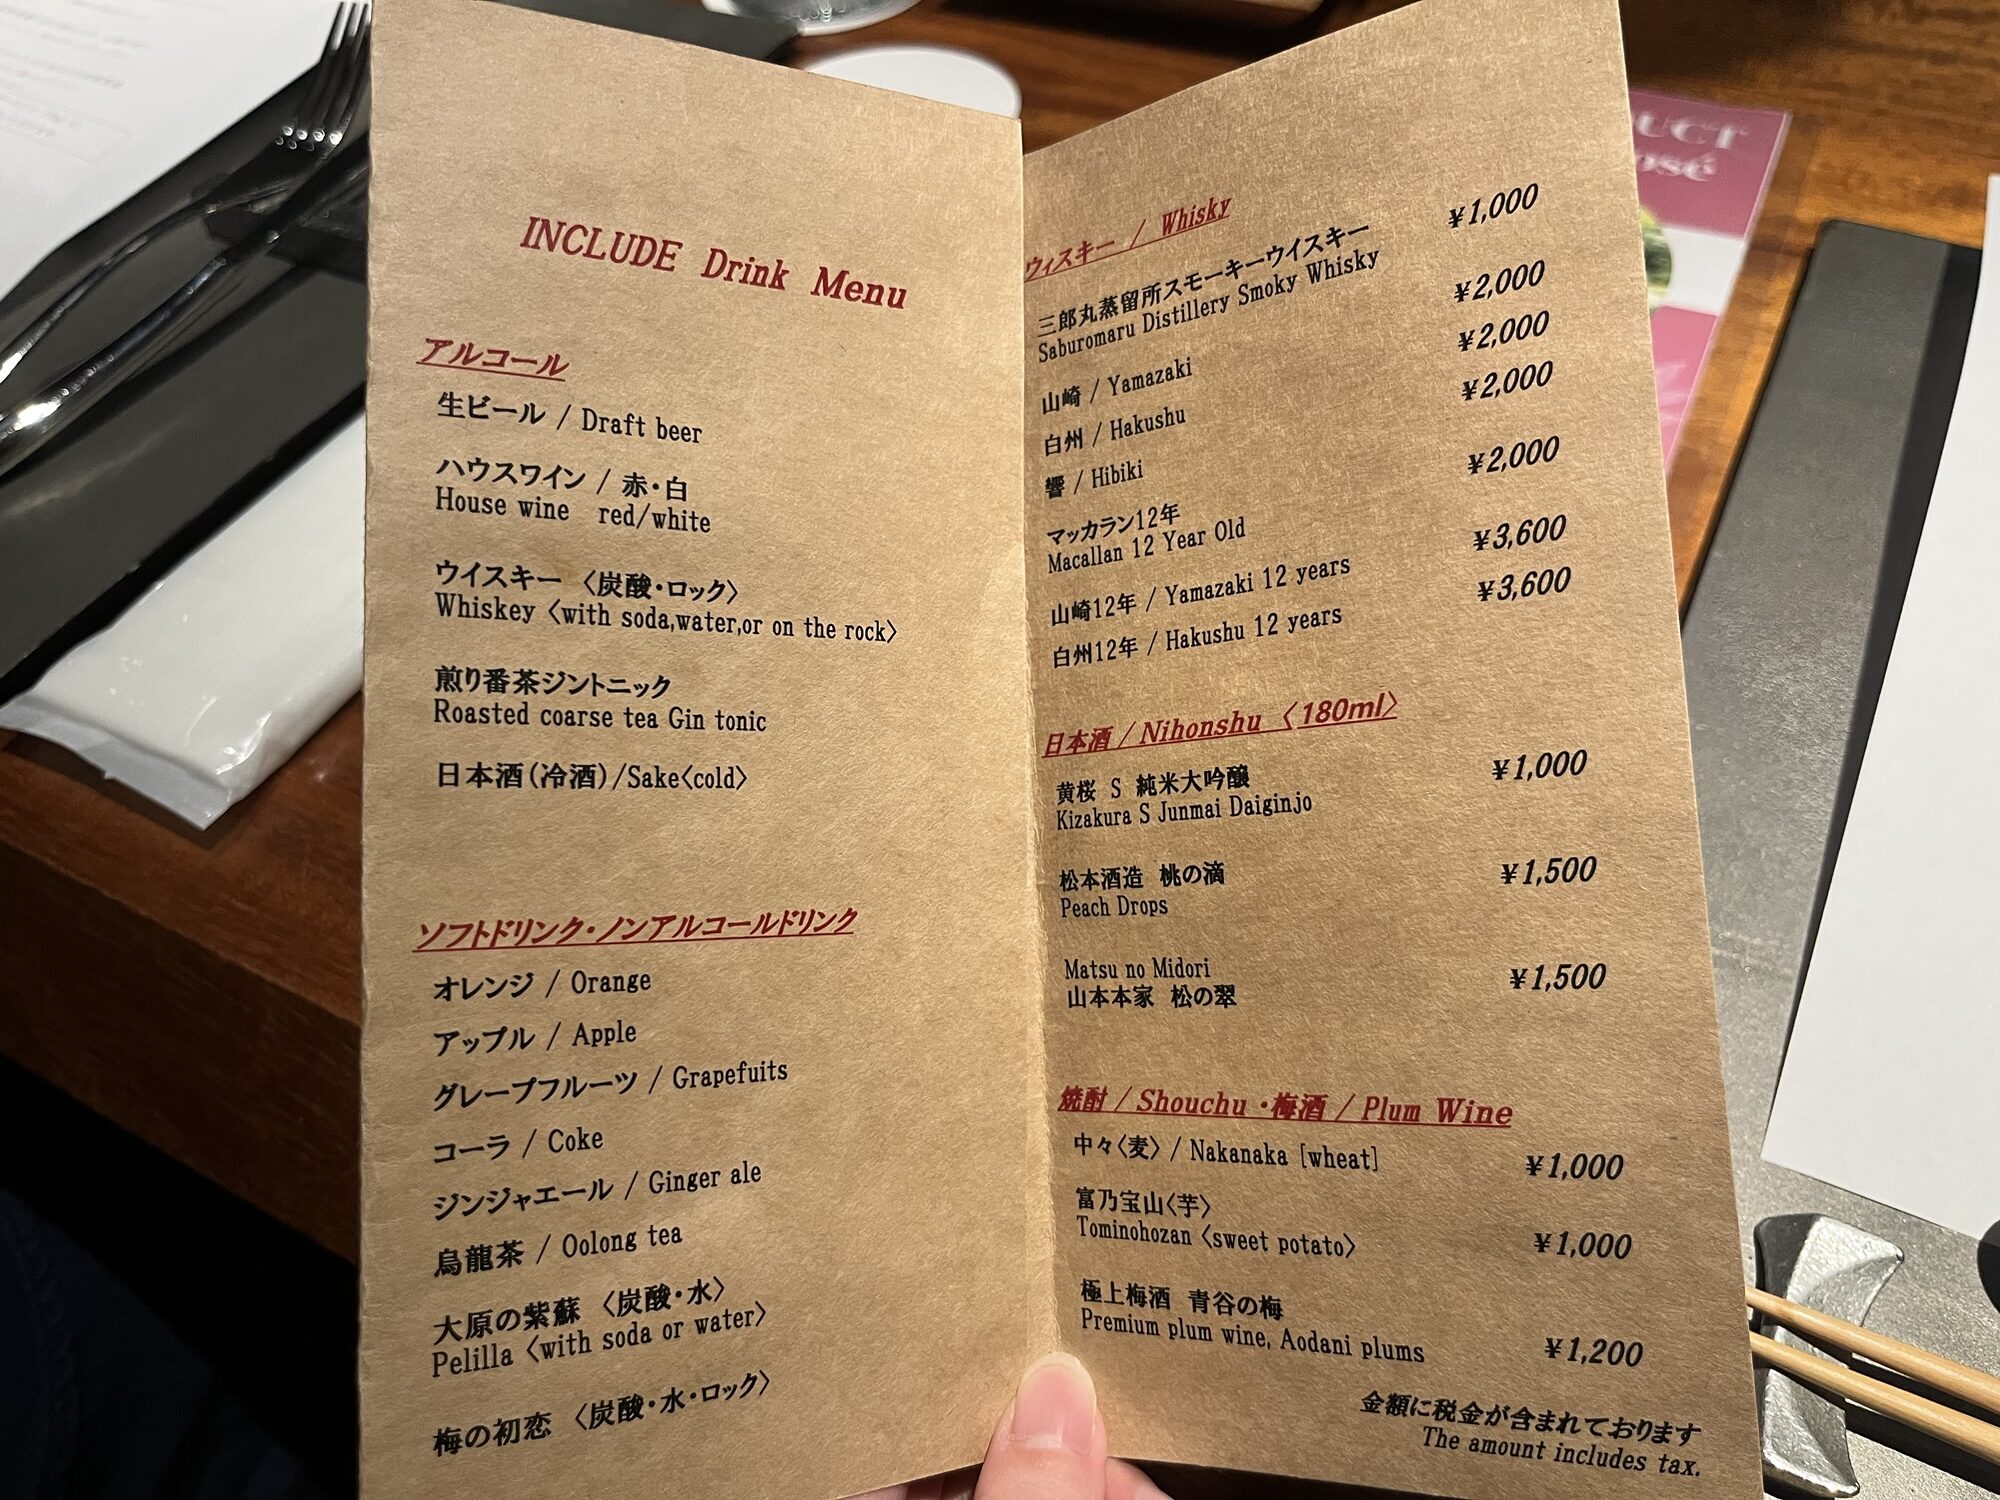 INCLUDE Drink Menu
アルコール
生ビール / Draft beer
ハウスワイン / 赤・白
House wine red/white
ウイスキー 〈炭酸・ロック〉
Whiskey 〈with soda,water,or on the rock〉
煎り番茶ジントニック
Roasted coarse tea Gin tonic
日本酒(冷酒)/Sake〈cold〉
ソフトドリンク・ノンアルコールドリンク
オレンジ / Orange
アップル / Apple
グレープフルーツ / Grapefuits
コーラ / Coke
ジンジャエール / Ginger ale
烏龍茶 / Oolong tea
大原の紫蘇 〈炭酸・水〉
Pelilla 〈with soda or water〉
梅の初恋 〈炭酸・水・ロック〉
ウィスキー / Whisky
三郎丸蒸留所スモーキーウイスキー ¥1,000
Saburomaru Distillery Smoky Whisky
山崎 / Yamazaki ¥2,000
白州 / Hakushu ¥2,000
響 / Hibiki ¥2,000
マッカラン12年 ¥2,000
Macallan 12 Year Old
山崎12年 / Yamazaki 12 years ¥3,600
白州12年 / Hakushu 12 years ¥3,600
日本酒 / Nihonshu 〈180ml〉
黄桜 S 純米大吟醸 ¥1,000
Kizakura S Junmai Daiginjo
松本酒造 桃の滴 ¥1,500
Peach Drops
Matsu no Midori ¥1,500
山本本家 松の翠
焼酎 / Shouchu ・梅酒 / Plum Wine
中々〈麦〉 / Nakanaka [wheat] ¥1,000
富乃宝山〈芋〉
Tominohozan 〈sweet potato〉 ¥1,000
極上梅酒 青谷の梅
Premium plum wine, Aodani plums ¥1,200
金額に税金が含まれております
The amount includes tax.